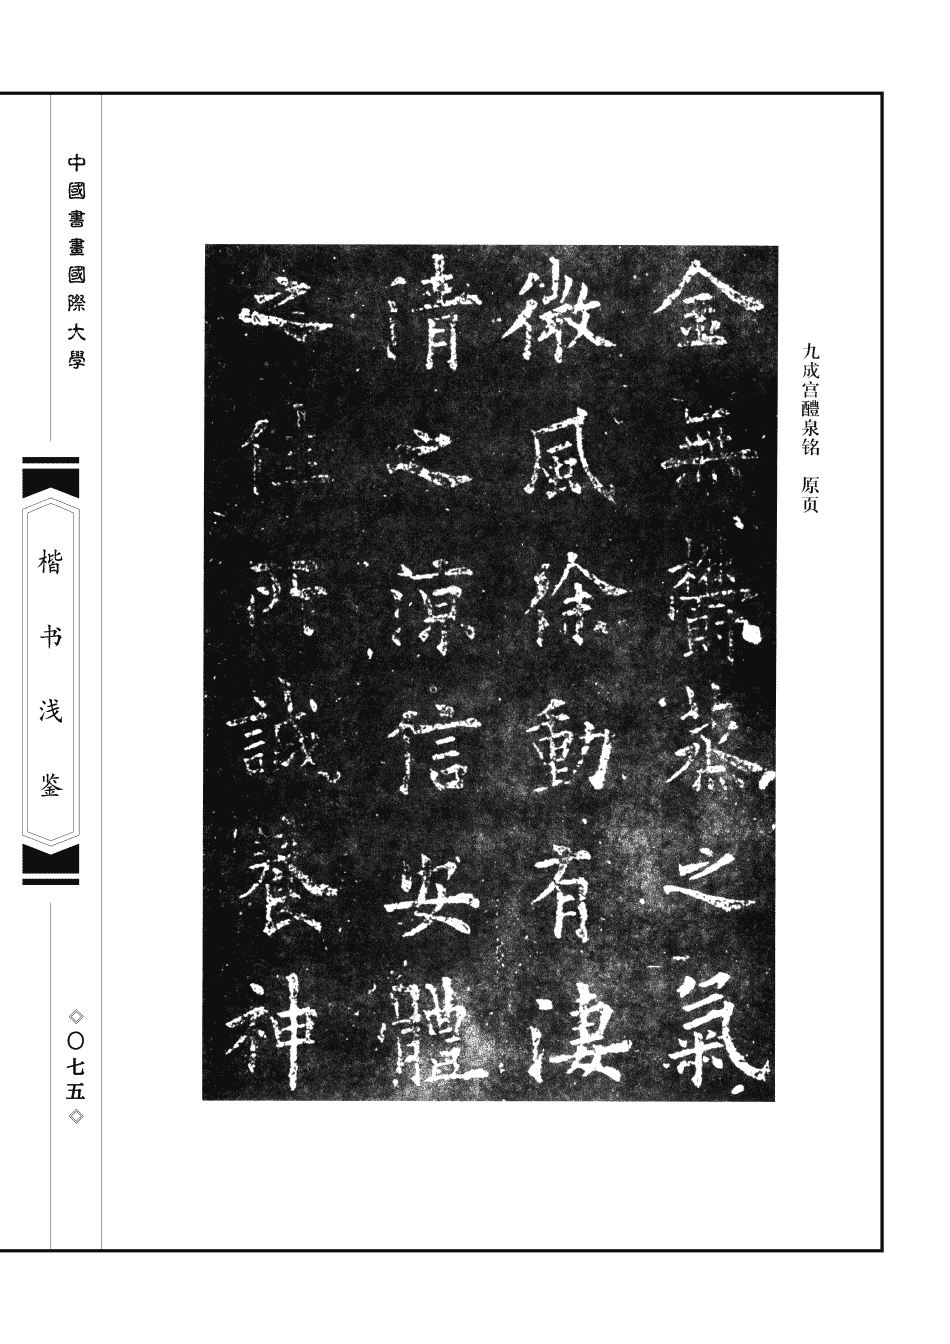 九成宫醴泉铭 原页
金無鬱蒸之氣
微風徐動有淒
清之涼信安體
之佳所誠養神
中國書畫國際大學
楷书浅鉴
〇七五